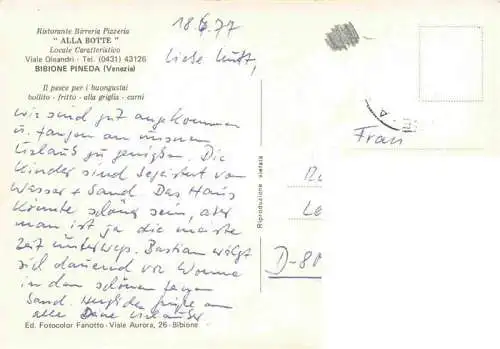 Ristorante Birreria Pizzeria
" ALLA BOTTE "
Locale Caratteristico
Viale Oleandri - Tel. (0431) 43126
BIBIONE PINEDA (Venezia)
Il pesce per i buongustai
bollito - fritto - alla griglia - carni
18.6.77
Liebe
wir sind gut angekommen
u. fangen an unseren
Urlaub zu genießen. Die
Kinder sind begeistert von
Wasser + Sand. Das Haus
könnte schöner sein, aber
man ist ja die meiste
Zeit unterwegs. Bastian wälzt
sich dauernd vor Wonne
in dem schönen
Sand. Herzliche Grüße an
alle Deine Urlauber
Ed. Fotocolor Fanotto - Viale Aurora, 26 - Bibione
Riproduzione vietata
Frau
D-80